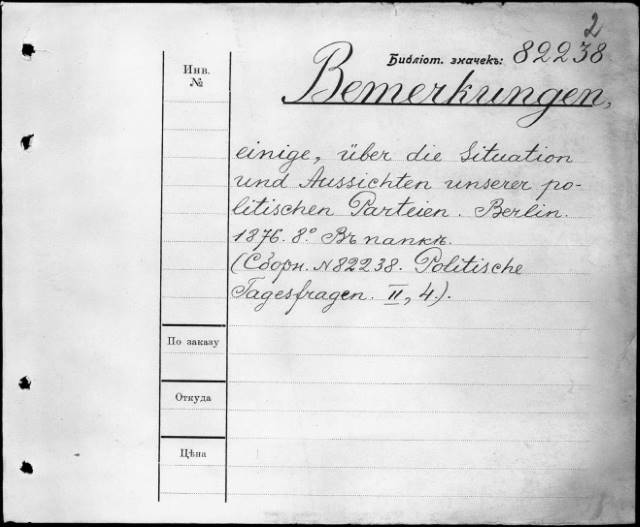 2
Библіот. значекъ: 82238
Инв.
№
Bemerkungen,
einige, über die Situation
und Aussichten unserer po-
litischen Parteien. Berlin.
1876. 8° Въ папкѣ.
(Сборн. N 82238. Politische
Tagesfragen. II, 4.).
По заказу
Откуда
Цѣна